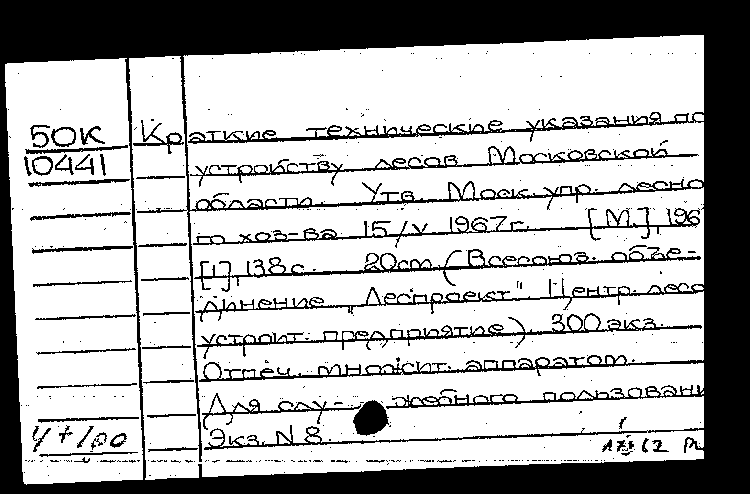 50К Краткие технические указания по
10441 устройству лесов Московской
области. Утв. Моск. упр. лесно
го хоз-ва 15/V 1967г. [М.], 196
[1], 138 с. 20см. (Всесоюз. объе-
динение „Леспроект". Центр. лесо
устроит. предприятие). 300 экз.
Отпеч. множит. аппаратом.
Для слу- жебного пользовани
Экз. N 8.